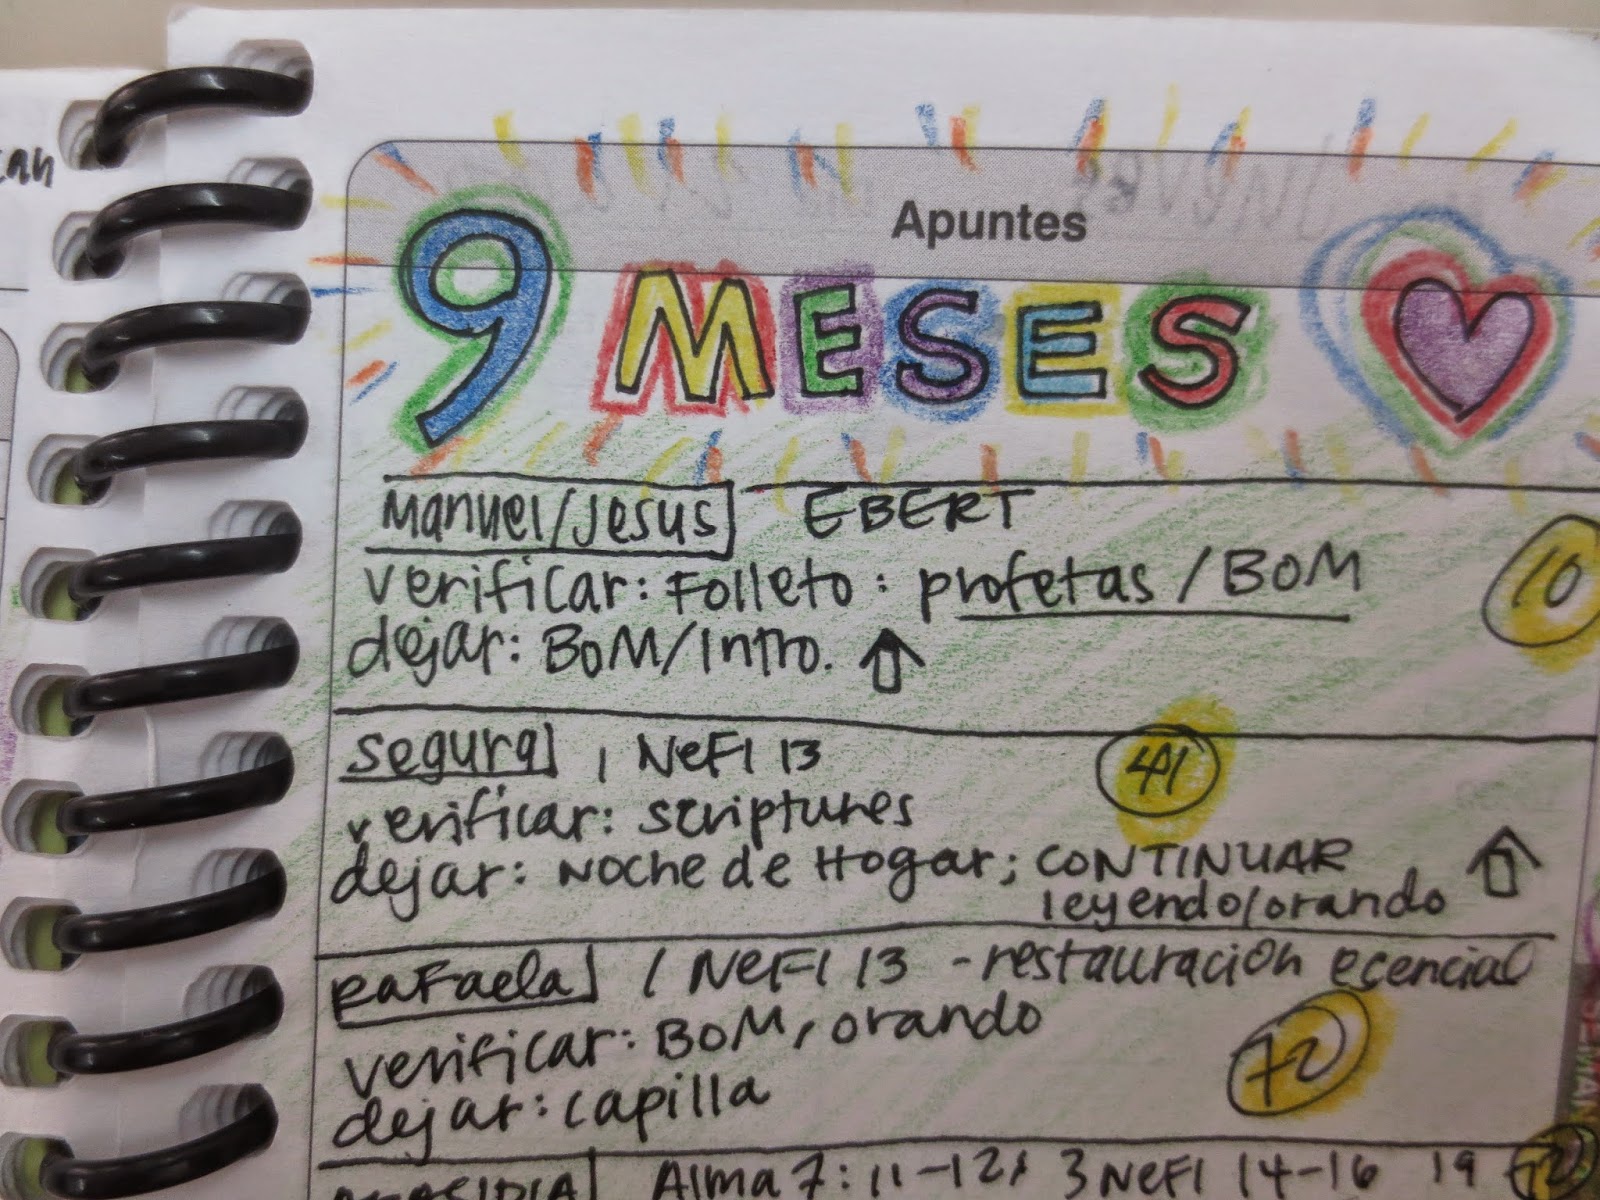 Apuntes
9 MESES
Manuel/Jesus EBERT
verificar: Folleto: profetas / BOM
10
dejar: BOM/Intro.
Segura 1 NEFI 13
41
verificar: scriptures
dejar: Noche de Hogar; CONTINUAR
leyendo/orando
Rafaela 1 NEFI 13 - restauración ecencial
verificar: BOM, orando
72
dejar: capilla
Alma 7: 11-12, 3 NEFI 14-16 19